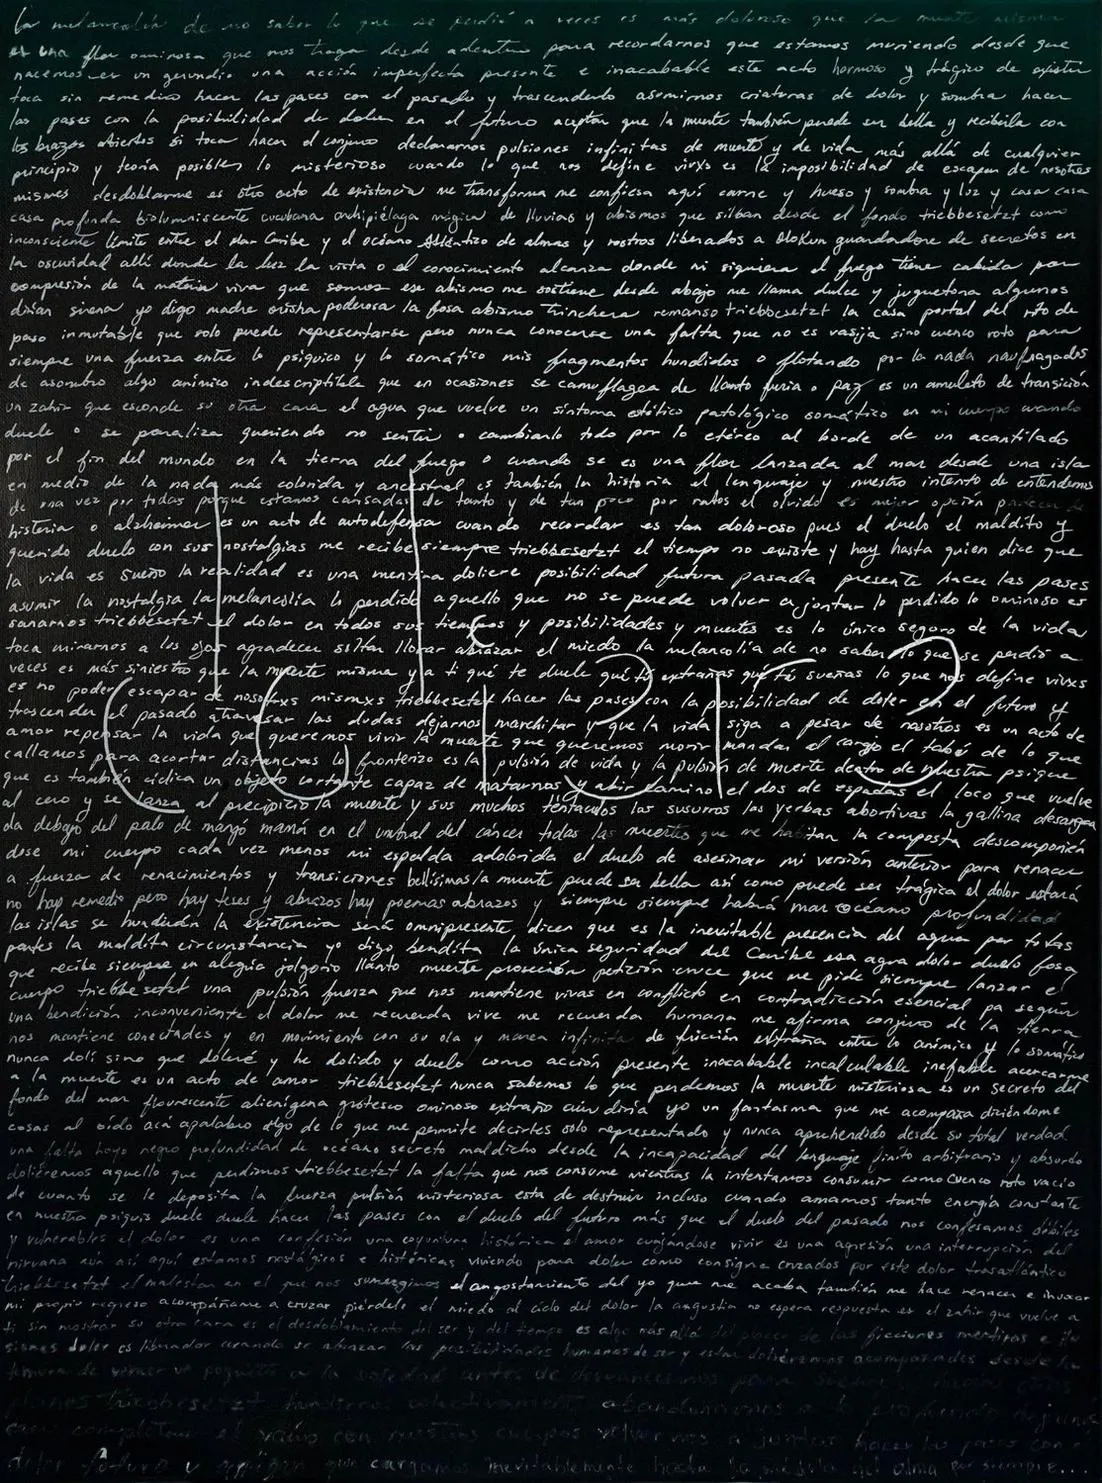 la melancolía de no saber lo que se perdió a veces es más doloroso que la muerte misma
es una flor ominosa que nos traga desde adentro para recordarnos que estamos muriendo desde que
nacemos es un gerundio una acción imperfecta presente e inacabable este acto hermoso y trágico de existir
toca sin remedio hacer las paces con el pasado y trascenderlo asumirnos criaturas de dolor y sombra hacer
las pases con la posibilidad de doler en el futuro aceptar que la muerte también puede ser bella y recibirla con
los brazos abiertos si toca hacer el conjuro declararnos pulsiones infinitas de muerte y de vida más allá de cualquier
principio y teoría posibles lo misterioso cuando lo que nos define vivxs es la imposibilidad de escapar de nosotres
mismes desdoblarme es otro acto de existencia me transforma me confiesa aquí carne y hueso y sombra y luz y casa casa
casa profunda bioluminiscente cucubana archipiélaga mágica de lluvias y abismos que silban desde el fondo triebbesetzt como
inconsciente límite entre el Mar Caribe y el océano Atlántico de almas y rostros liberados a Olokun guardandore de secretos en
la oscuridad allí donde la luz la vista o el conocimiento alcanza donde ni siquiera el fuego tiene cabida por
compresión de la materia viva que somos ese abismo me sostiene desde abajo me llama dulce y juguetona algunos
dirían sirena yo digo madre orisha poderosa la fosa abismo trinchera remanso triebbesetzt la casa portal del rito de
paso inmutable que solo puede representarse pero nunca conocerse una falta que no es vasija sino cuenco roto para
siempre una fuerza entre lo psíquico y lo somático mis fragmentos hundidos o flotando por la nada naufragados
de asombro algo anímico indescriptible que en ocasiones se camuflagea de llanto furia o paz es un amuleto de transición
un zahir que esconde su otra cara el agua que vuelve un síntoma estético patológico somático en mi cuerpo cuando
duele o se paraliza queriendo no sentir o cambiarlo todo por lo etéreo al borde de un acantilado
por el fin del mundo en la tierra del fuego o cuando se es una flor lanzada al mar desde una isla
en medio de la nada más colorida y ancestral es también la historia el lenguaje y nuestro intento de entendernos
de una vez por todas porque estamos cansadas de tanto y de tan poco por ratos el olvido es mejor opción padecer de
histeria o alzheimer es un acto de autodefensa cuando recordar es tan doloroso pues el duelo el maldito y
querido duelo con sus nostalgias me recibe siempre triebbesetzt el tiempo no existe y hay hasta quien dice que
la vida es sueño la realidad es una mentira doliere posibilidad futura pasada presente hacer las pases
asumir la nostalgia la melancolia lo perdido aquello que no se puede volver a juntar lo perdido lo ominoso es
sanarnos triebbesetzt el dolor en todos sus tiempos y posibilidades y muertes es lo único seguro de la vida
toca mirarnos a los ojos agradecer soltar llorar abrazar el miedo la melancolía de no saber lo que se perdió a
veces es más siniestro que la muerte misma y a ti qué te duele qué extrañas qué sueñas lo que nos define vivxs
es no poder escapar de nosotrxs mismxs triebbesetzt hacer las pases con la posibilidad de doler en el futuro y
trascender el pasado atravesar las dudas dejarnos marchitar y que la vida siga a pesar de nosotros es un acto de
amor repensar la vida que queremos vivir la muerte que queremos morir mandar al carajo el tabú de lo que
callamos para acortar distancias lo fronterizo es la pulsión de vida y la pulsión de muerte dentro de nuestra psique
que es también cíclica un objeto cortante capaz de matarnos y abrir camino el dos de espadas el loco que vuelve
al cero y se lanza al precipicio la muerte y sus muchos téntaculos los susurros las yerbas abortivas la gallina desangra
da debajo del palo de mangó mamá en el umbral del cáncer todas las muertes que me habitan la composta descomponién
dose mi cuerpo cada vez menos mi espalda adolorida el duelo de asesinar mi versión anterior para renacer
a fuerza de renacimientos y transiciones bellísimas la muerte puede ser bella así como puede ser trágica el dolor estará
no hay remedio pero hay teses y abrazos hay poemas abrazos y siempre siempre habrá mar océano profundidad
las islas se hundirán la existencia será omnipresente dicen que es la inevitable presencia del agua por todas
partes la maldita circunstancia yo digo bendita la única seguridad del Caribe esa agua dolor duelo fosa
que recibe siempre en alegría jolgorio llanto muerte procesión petición cruce que me pide siempre lanzar el
cuerpo triebbesetzt una pulsión fuerza que nos mantiene vivas en conflicto en contradicción esencial pa seguir
una bendición inconveniente el dolor me recuerda vive me recuerda humana me afirma conjuro de la tierra
nos mantiene conectades y en movimiento con su ola y marea infinita de fricción extraña entre lo anímico y lo somático
nunca dolí sino que doleré y he dolido y duelo como acción presente inacabable incalculable inefable acercarme
a la muerte es un acto de amor triebbesetzt nunca sabemos lo que perdemos la muerte misteriosa es un secreto del
fondo del mar flourescente alienígena grotesco ominoso extraño aún diría yo un fantasma que me acompaña diciéndome
cosas al oído acá apalabro algo de lo que me permite decirles solo representado y nunca aprehendido desde su total verdad
una falta hoyo negro profundidad de océano secreto maldicho desde la incapacidad del lenguaje finito arbitrario y absurdo
doliéremos aquello que perdimos triebbesetzt la falta que nos consume mientras la intentamos consumir como cuenco roto vacío
de cuanto se le deposita la fuerza pulsión misteriosa esta de destruir incluso cuando amamos tanto energía constante
en nuestra psiquis duele duele hacer las pases con el duelo del futuro más que el duelo del pasado nos confesamos débiles
y vulnerables el dolor es una confesión una coyuntura histórica el amor cuajándose vivir es una agresión una interrupción del
nirvana aún así aquí estamos nostálgicos e histéricas viviendo para doler como consigna cruzados por este dolor trasatlántico
triebbesetzt el malestar en el que nos sumergimos el angostamiento del yo que me acaba también me hace renacer e invocar
mi propio regreso acompáñame a cruzar piérdele el miedo al ciclo del dolor la angustia no espera respuesta es el zahir que vuelve a
ti sin mostrar su otra cara es el desdoblamiento del ser y del tiempo es algo más allá del placer de las ficciones mentiras e
doler es liberador cuando se abrazan las posibilidades humanas de ser y estar doliéremos acompañades desde la
a la soledad antes de desvanecernos para
triebbesetzt colectivamente abandonarnos a lo profundo
el vacío con nuestros cuerpos volvernos a juntar hacer las pases con
dolor futuro y que cargamos inevitablemente hasta la del alma por siempre...